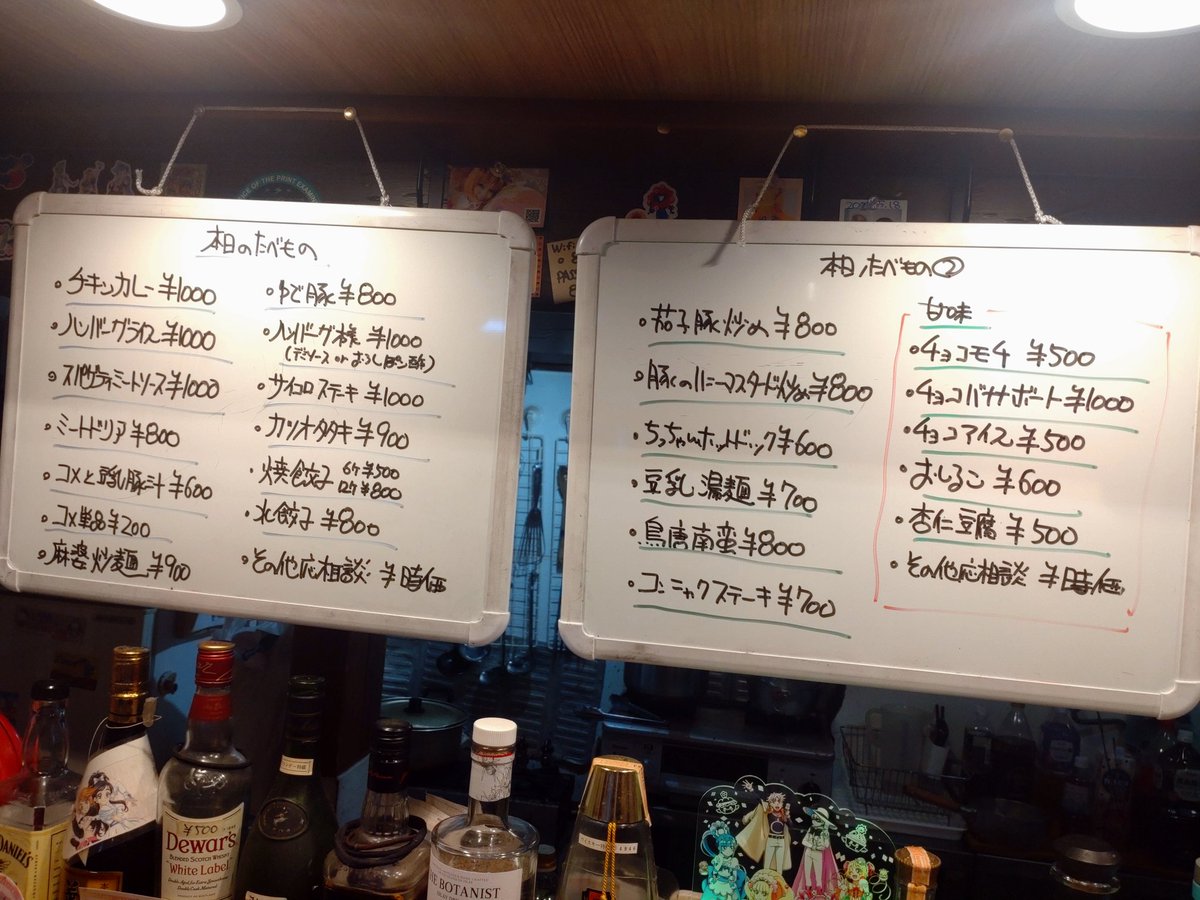 本日のたべもの
・チキンカレー ¥1000
・ハンバーグライス ¥1000
・スパゲティミートソース ¥1000
・ミートドリア ¥800
・コメと豆乳豚汁 ¥600
・コメ単品 ¥200
・麻婆炒麺 ¥900
・ゆで豚 ¥800
・ハンバーグ単 ¥1000
(デミソース or おろしぽん酢)
・サイコロステーキ ¥1000
・カツオタタキ ¥900
・焼餃子 6ケ ¥500
12ケ ¥800
・水餃子 ¥800
・その他応相談 ¥時価
本日のたべもの②
・茄子豚炒め ¥800
・豚のハニーマスタード炒め ¥800
・ちっちゃいホットドック ¥600
・豆乳湯麺 ¥700
・鳥唐南蛮 ¥800
・コンニャクステーキ ¥700
甘味
・チョコモチ ¥500
・チョコバナナボート ¥1000
・チョコアイス ¥500
・おしるこ ¥600
・杏仁豆腐 ¥500
・その他応相談 ¥時価
OF THE PRINT
Wi-Fi
PAS
¥500
Dewar's
BLENDED SCOTCH WHISKY
White Label
BOTANIST